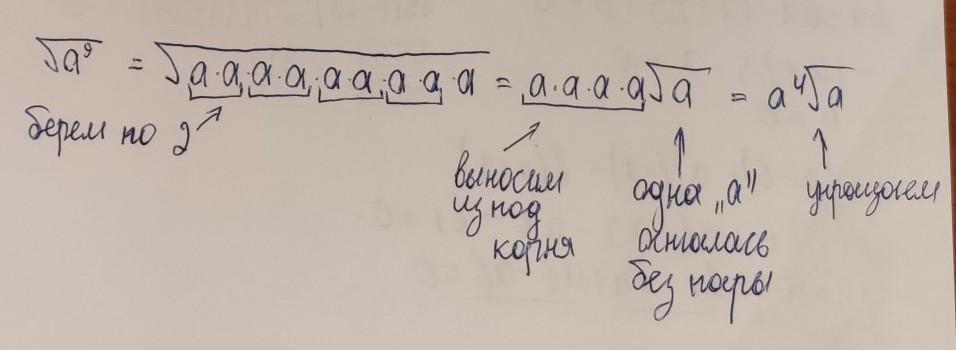 √a⁹ = √a·a·a·a·a·a·a·a·a = a·a·a·a√a = a⁴√a
берем по 2
выносим
из под
корня
одна „а"
осталась
без пары
упрощаем